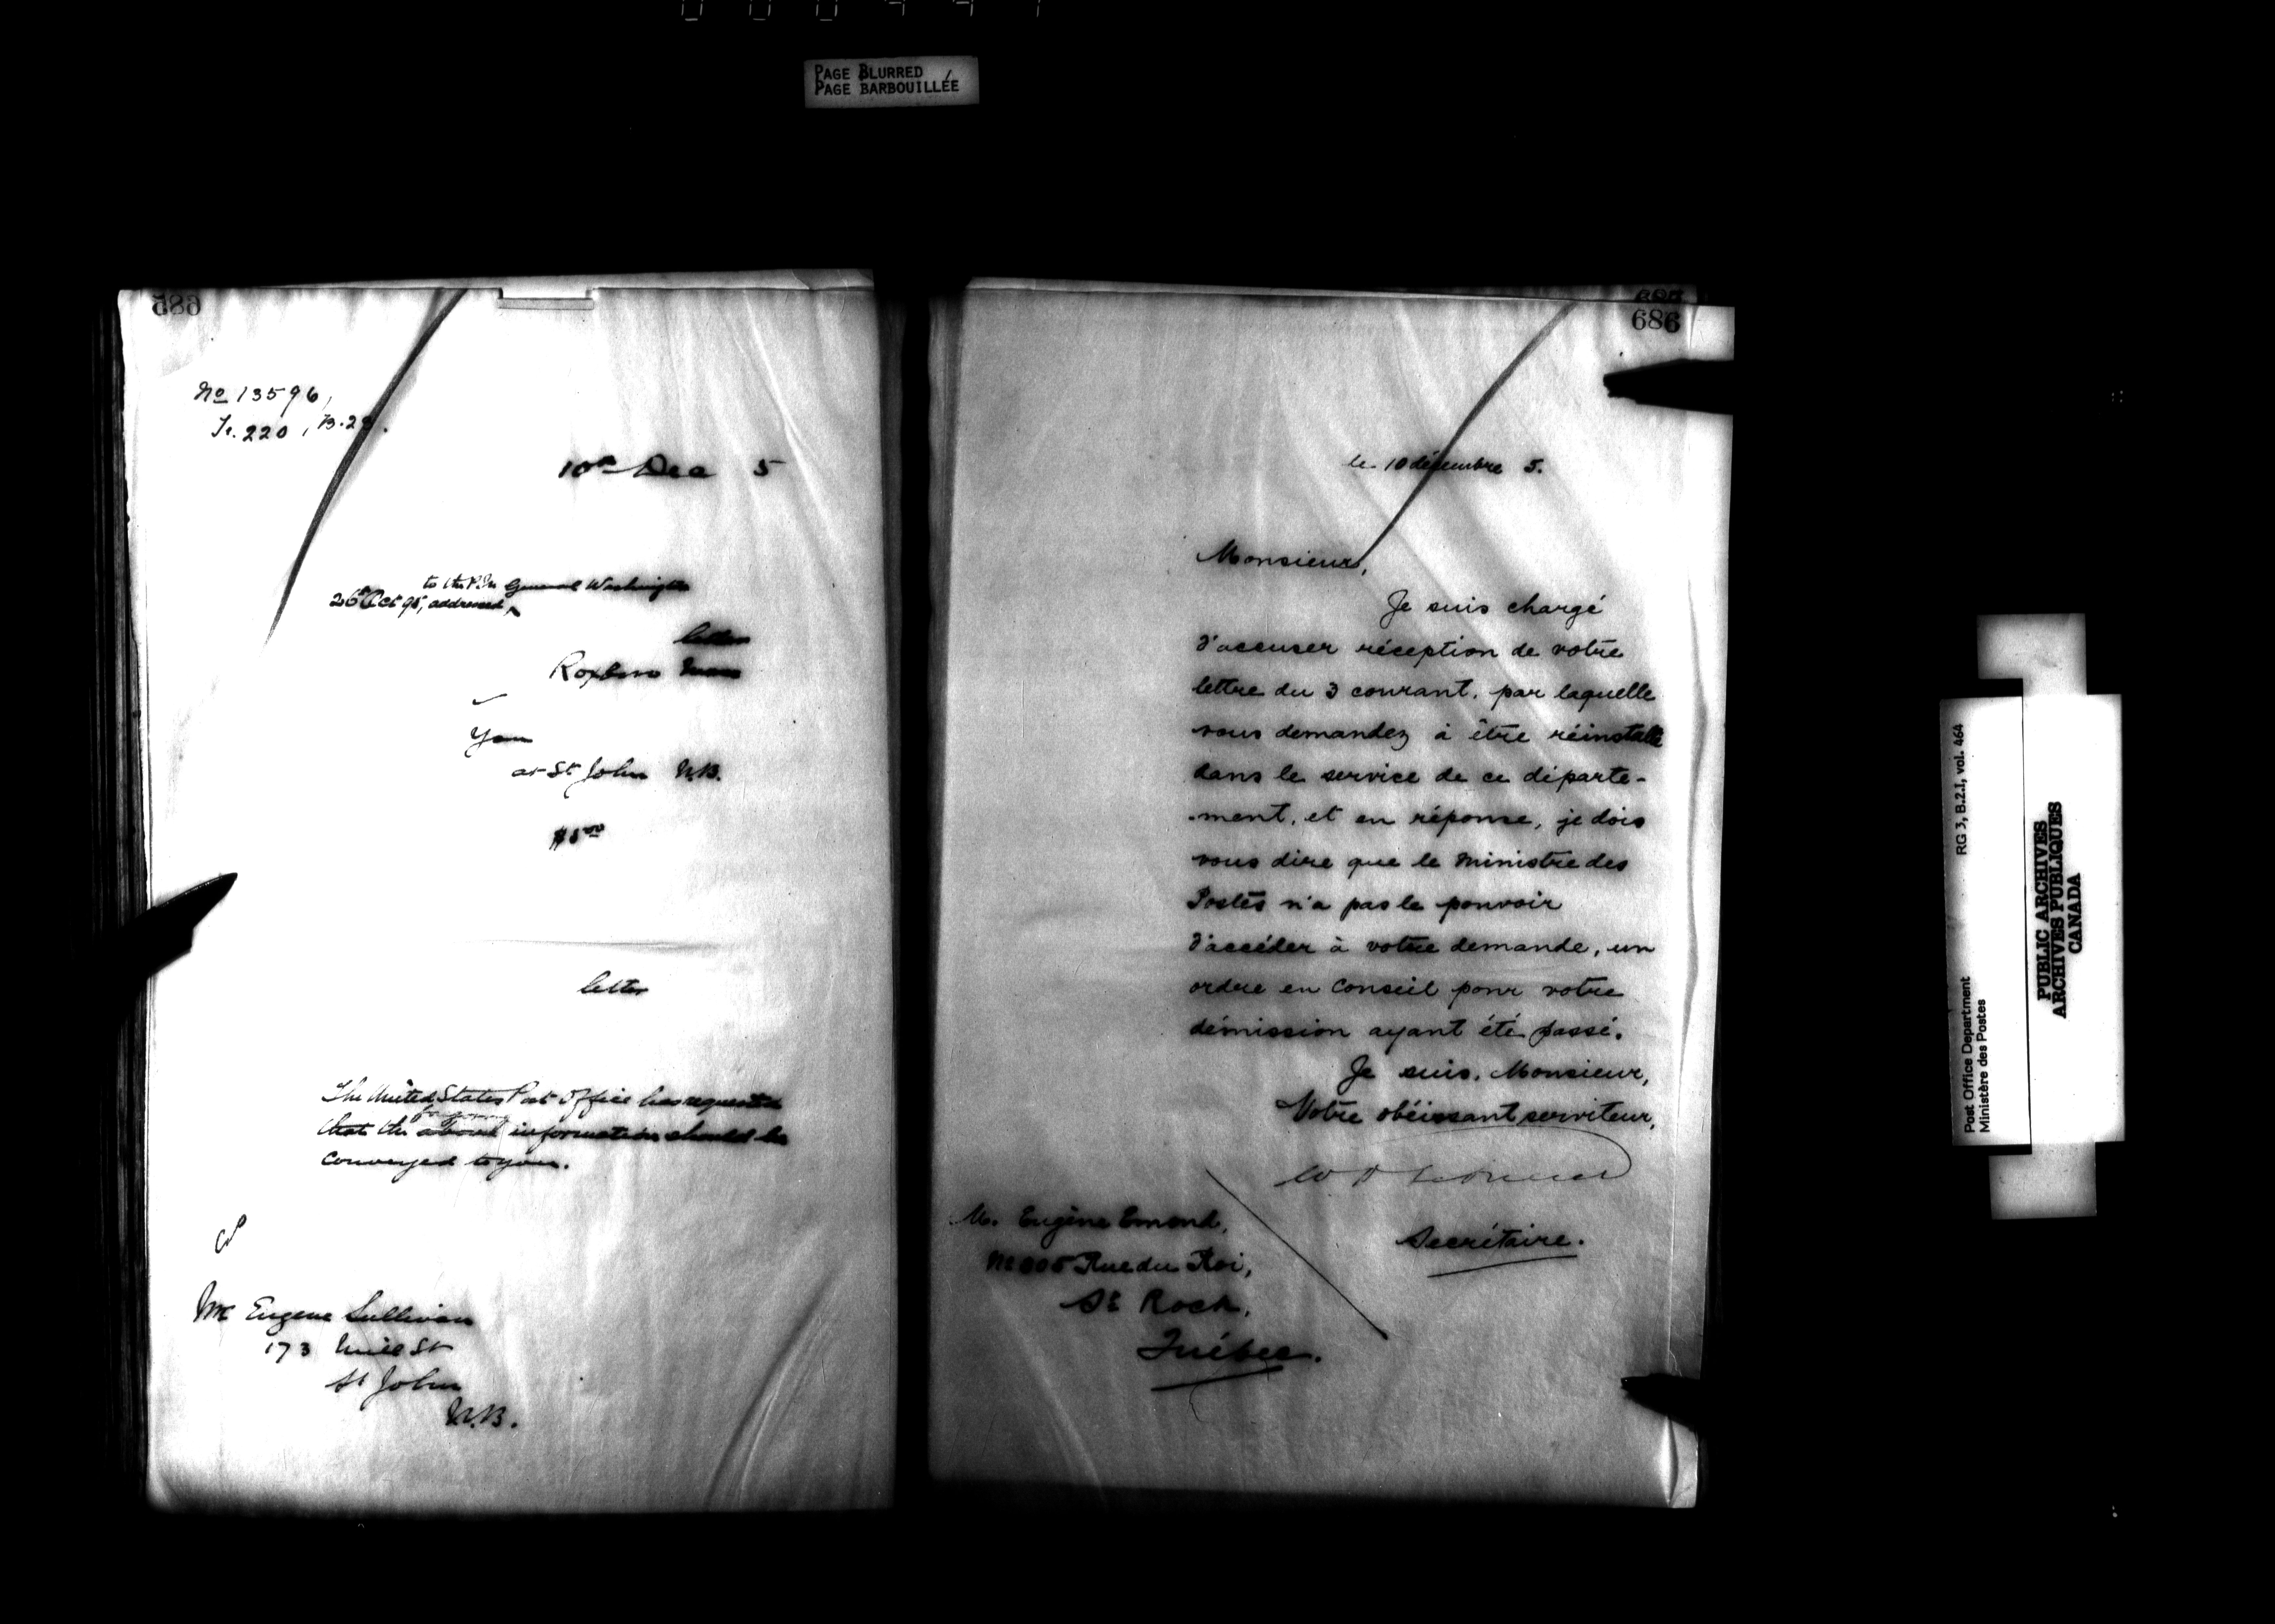 PAGE BLURRED
PAGE BARBOUILLÉE
685
No 13596,
Tr. 220, B.23.
10th Dec 5
to the P.M. General Washington
26 Oct 95, addressed,
letter
Roxboro Mass
You
at St John N.B.
letter
The United States Post Office has requested
that the above information should be
conveyed to you.
Mr Eugene Sullivan
173 Mill St
St John
N.B.
686
le 10 décembre 5.
Monsieur,
Je suis chargé
d'accuser réception de votre
lettre du 3 courant, par laquelle
vous demandez à être réinstallé
dans le service de ce départe-
-ment, et en réponse, je dois
vous dire que le Ministre des
Postes n'a pas le pouvoir
d'accéder à votre demande, un
ordre en Conseil pour votre
démission ayant été passé.
Je suis, Monsieur,
Votre obéissant serviteur,
Secrétaire.
M. Eugène Emond,
Rue du Roi,
St Roch,
Québec.
Post Office Department
Ministère des Postes
RG 3, B.2.I, vol. 464
PUBLIC ARCHIVES
ARCHIVES PUBLIQUES
CANADA